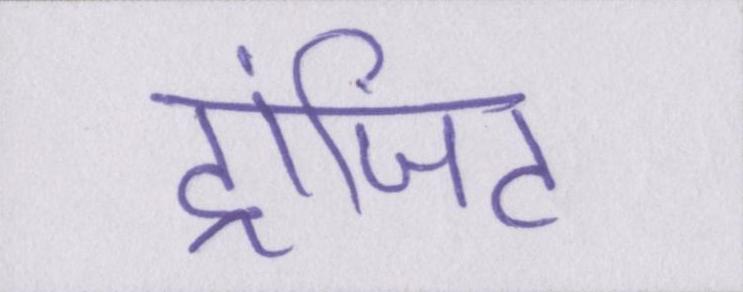 ट्रांजिंट